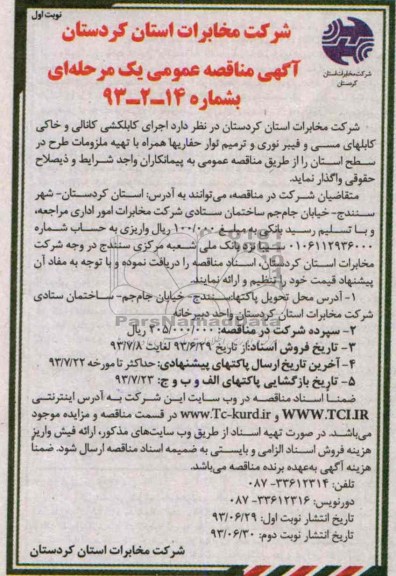 نوبت اول
شرکت مخابرات استان کردستان
آگهی مناقصه عمومی یک مرحله‌ای
بشماره ۱۴-۲-۹۳
شرکت مخابرات استان
کردستان
شرکت مخابرات استان کردستان در نظر دارد اجرای کابلکشی کانالی و خاکی
کابلهای مسی و فیبر نوری و ترمیم نوار حفاریها همراه با تهیه ملزومات طرح در
سطح استان را از طریق مناقصه عمومی به پیمانکاران واجد شرایط و ذیصلاح
حقوقی واگذار نماید.
متقاضیان شرکت در مناقصه، می‌توانند به آدرس: استان کردستان- شهر
سنندج- خیابان جام‌جم ساختمان ستادی شرکت مخابرات امور اداری مراجعه،
و با تسلیم رسید بانکی به مبلغ ۱۰۰/۰۰۰ ریال واریزی به حساب شماره
۰۱۰۶۱۱۲۹۳۶۰۰۰ سیبا نزد بانک ملی شعبه مرکزی سنندج در وجه شرکت
مخابرات استان کردستان، اسناد مناقصه را دریافت نموده و با توجه به مفاد آن
پیشنهاد قیمت خود را تنظیم و ارائه نمایند.
۱- آدرس محل تحویل پاکتها: سنندج- خیابان جام‌جم- ساختمان ستادی
شرکت مخابرات استان کردستان واحد دبیرخانه
ParsNamadData
۲- سپرده شرکت در مناقصه: ۳۰۵/۰۰۰/۰۰۰ ریال
۳- تاریخ فروش اسناد: از تاریخ ۹۳/۶/۲۹ لغایت ۹۳/۷/۸
۴- آخرین تاریخ ارسال پاکتهای پیشنهادی: حداکثر تا مورخه ۹۳/۷/۲۲
۵- تاریخ بازگشایی پاکتهای الف و ب و ج: ۹۳/۷/۲۳
ضمناً اسناد مناقصه در وب سایت این شرکت به آدرس اینترنتی
WWW.TCI.IR و www.Tc-kurd.ir در قسمت مناقصه و مزایده موجود
می‌باشد. در صورت تهیه اسناد از طریق وب سایت‌های مذکور، ارائه فیش واریز
هزینه فروش اسناد الزامی و بایستی به ضمیمه اسناد مناقصه ارسال شود. ضمناً
هزینه آگهی به‌عهده برنده مناقصه می‌باشد.
تلفن: ۳۳۶۱۲۳۱۴- ۰۸۷
دورنویس: ۳۳۶۱۲۳۱۶- ۰۸۷
تاریخ انتشار نوبت اول: ۹۳/۰۶/۲۹
تاریخ انتشار نوبت دوم: ۹۳/۰۶/۳۰
شرکت مخابرات استان کردستان